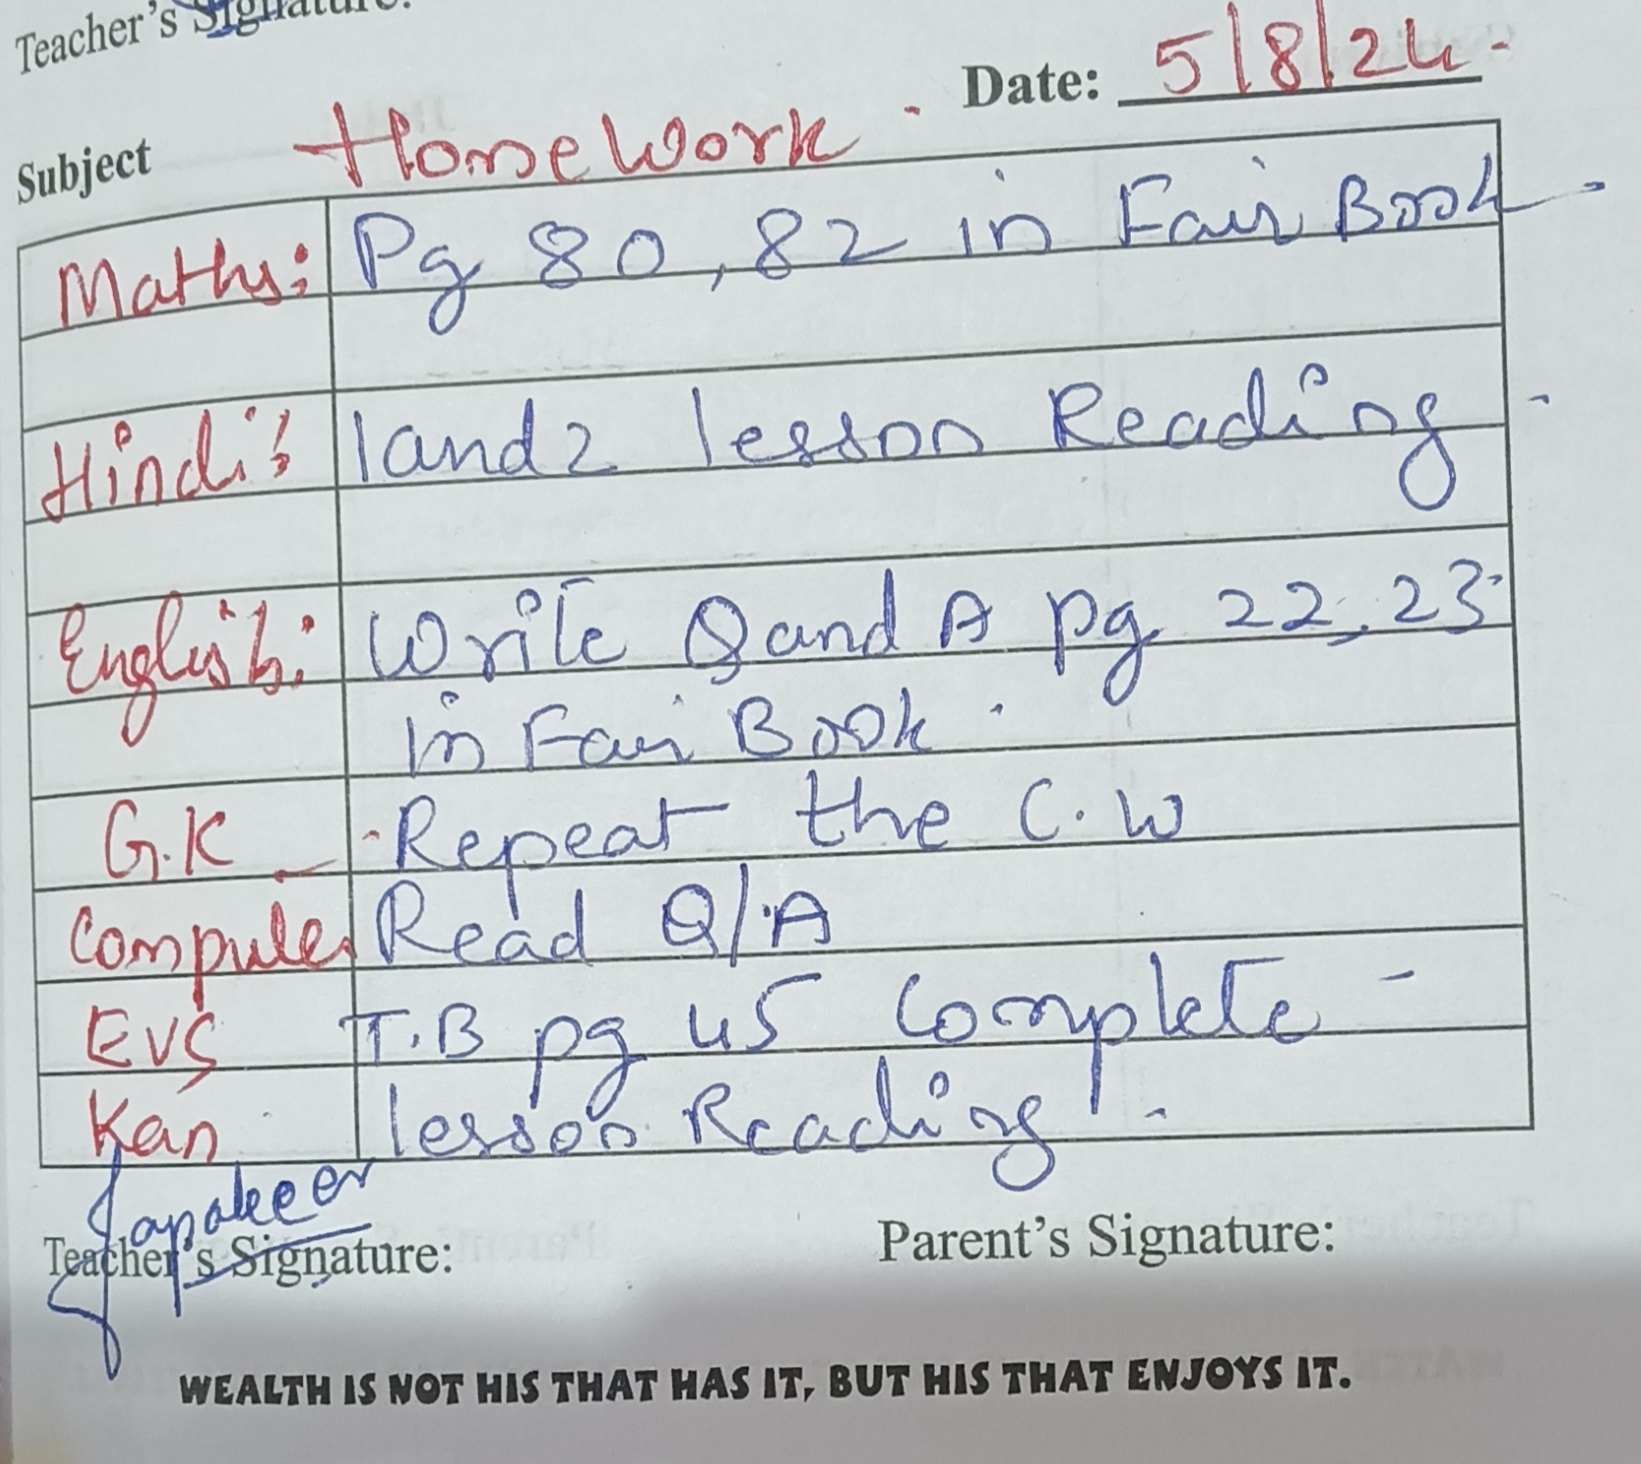 Teacher's Signature:
Date: 5/8/24
Subject
Home Work
Maths: Pg 80, 82 in Fair Book
Hindi: 1 and 2 lesson Reading
English: Write Q and A pg 22, 23
in Fair Book.
G.K - Repeat the C.W
Computer Read Q/A
EVS T.B pg 45 Complete
Kan lesson Reading.
Teacher's Signature:
Parent's Signature:
WEALTH IS NOT HIS THAT HAS IT, BUT HIS THAT ENJOYS IT.